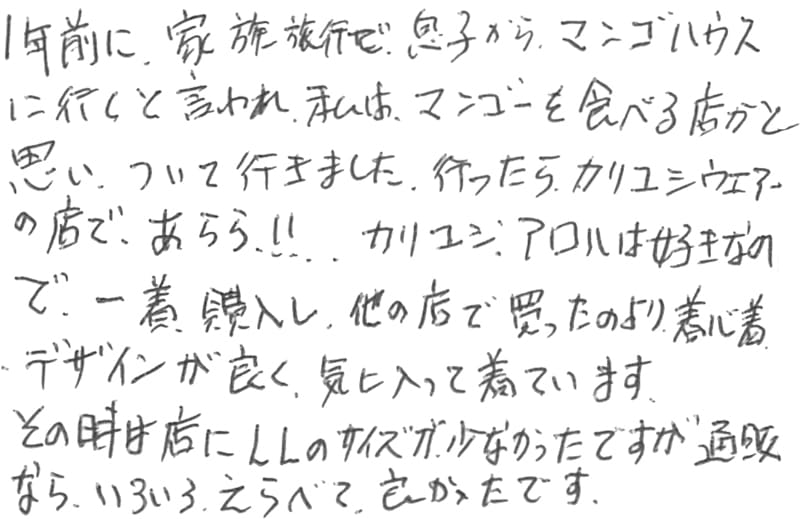 1年前に、家族旅行で、息子から、マンゴハウス
に行くと言われ、私は、マンゴーを食べる店かと
思い、ついて行きました。行ったら、カリユシウェアー
の店で、あらら、!!、、カリユシ、アロハは好きなの
で、一着、購入し、他の店で買ったのより、着心着
デザインが良く、気に入って着ています。
その時は店にLLのサイズが、少なかったですが通販
なら、いろいろ、えらべて、良かったです。